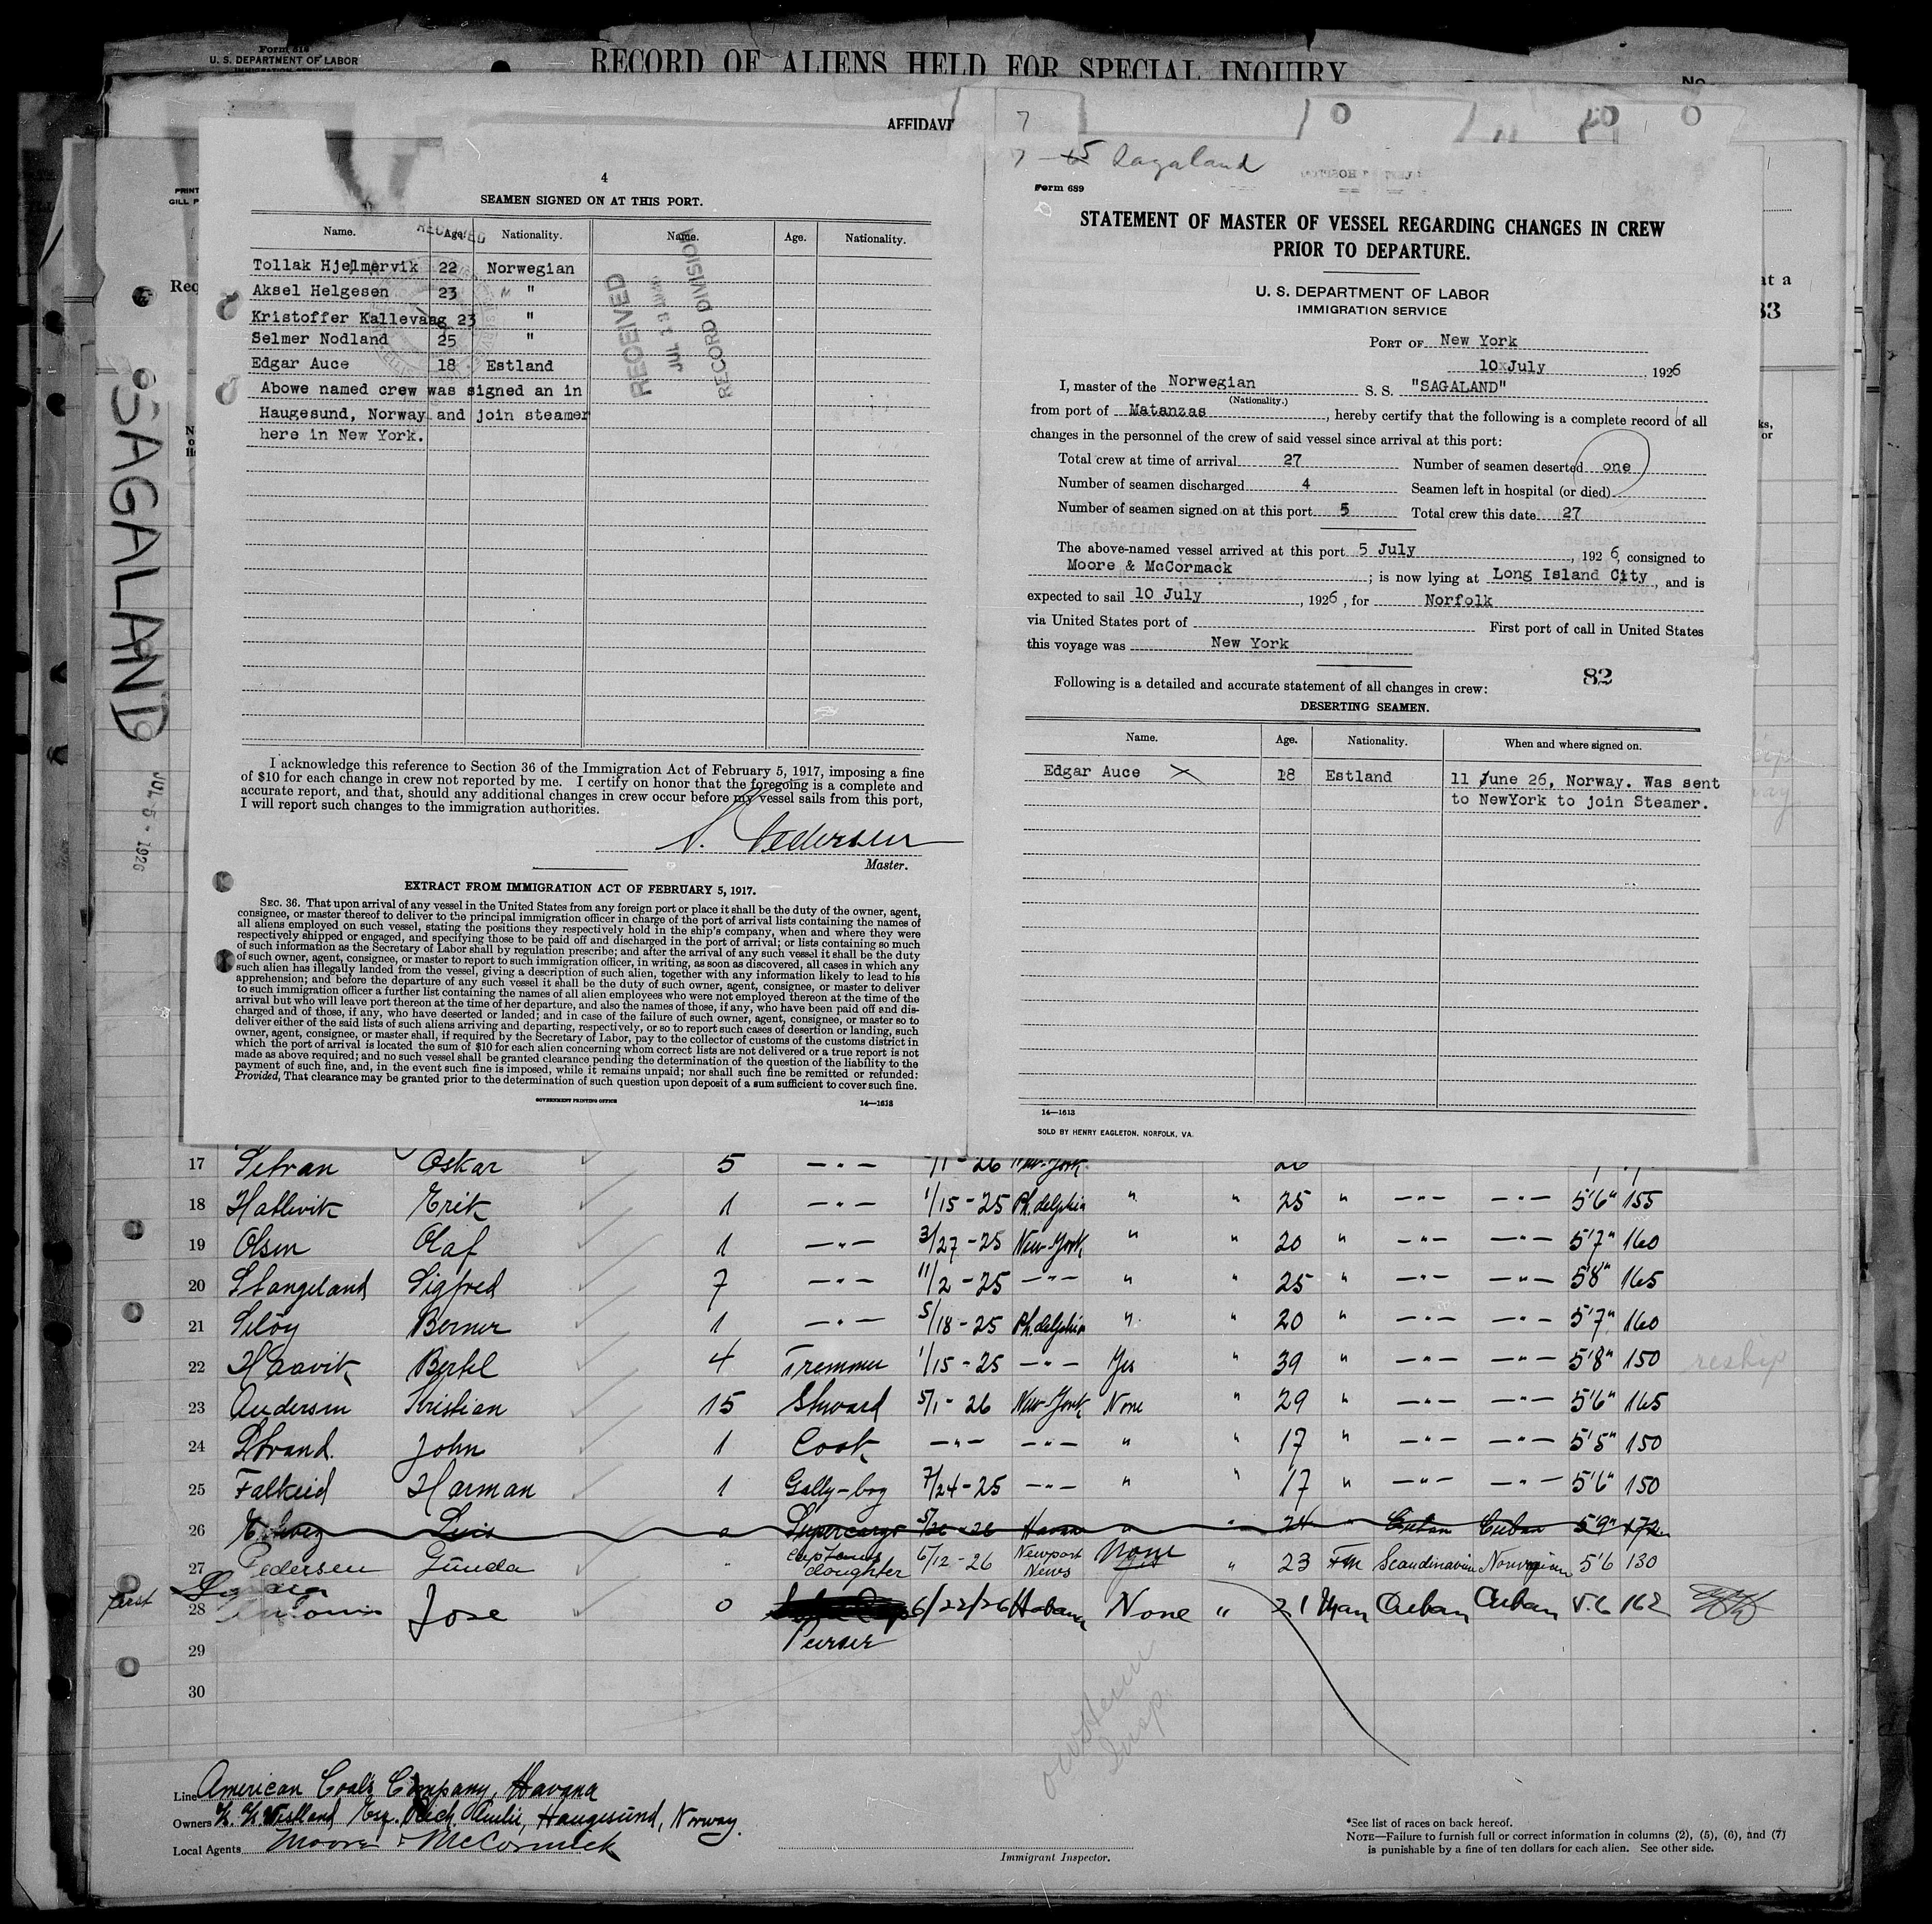 Form 618
U. S. DEPARTMENT OF LABOR
RECORD OF ALIENS HELD FOR SPECIAL INQUIRY
No
AFFIDAVI
7
7 - 5 Sagaland
SAGALAND
JUL 5 - 1926
4
SEAMEN SIGNED ON AT THIS PORT.
Name. Age. Nationality. Name. Age. Nationality.
Tollak Hjelmervik 22 Norwegian
Aksel Helgesen 23 "
Kristoffer Kallevaag 23 "
Selmer Nodland 25 "
Edgar Auce 18 Estland
Abowe named crew was signed an in
Haugesund, Norway and join steamer
here in New York.
RECEIVED
RECORD DIVISION
I acknowledge this reference to Section 36 of the Immigration Act of February 5, 1917, imposing a fine
of $10 for each change in crew not reported by me. I certify on honor that the foregoing is a complete and
accurate report, and that, should any additional changes in crew occur before my vessel sails from this port,
I will report such changes to the immigration authorities.
Pedersen
Master.
EXTRACT FROM IMMIGRATION ACT OF FEBRUARY 5, 1917.
SEC. 36. That upon arrival of any vessel in the United States from any foreign port or place it shall be the duty of the owner, agent,
consignee, or master thereof to deliver to the principal immigration officer in charge of the port of arrival lists containing the names of
all aliens employed on such vessel, stating the positions they respectively hold in the ship's company, when and where they were
respectively shipped or engaged, and specifying those to be paid off and discharged in the port of arrival; or lists containing so much
of such information as the Secretary of Labor shall by regulation prescribe; and after the arrival of any such vessel it shall be the duty
of such owner, agent, consignee, or master to report to such immigration officer, in writing, as soon as discovered, all cases in which any
such alien has illegally landed from the vessel, giving a description of such alien, together with any information likely to lead to his
apprehension; and before the departure of any such vessel it shall be the duty of such owner, agent, consignee, or master to deliver
to such immigration officer a further list containing the names of all alien employees who were not employed thereon at the time of the
arrival but who will leave port thereon at the time of her departure, and also the names of those, if any, who have been paid off and dis-
charged and of those, if any, who have deserted or landed; and in case of the failure of such owner, agent, consignee, or master so to
deliver either of the said lists of such aliens arriving and departing, respectively, or so to report such cases of desertion or landing, such
owner, agent, consignee, or master shall, if required by the Secretary of Labor, pay to the collector of customs of the customs district in
which the port of arrival is located the sum of $10 for each alien concerning whom correct lists are not delivered or a true report is not
made as above required; and no such vessel shall be granted clearance pending the determination of the question of the liability to the
payment of such fine, and, in the event such fine is imposed, while it remains unpaid; nor shall such fine be remitted or refunded:
Provided, That clearance may be granted prior to the determination of such question upon deposit of a sum sufficient to cover such fine.
GOVERNMENT PRINTING OFFICE 14—1613
Form 689
STATEMENT OF MASTER OF VESSEL REGARDING CHANGES IN CREW
PRIOR TO DEPARTURE.
U. S. DEPARTMENT OF LABOR
IMMIGRATION SERVICE
PORT OF New York
10 July, 1926
I, master of the Norwegian S. S. "SAGALAND"
(Nationality.)
from port of Matanzas, hereby certify that the following is a complete record of all
changes in the personnel of the crew of said vessel since arrival at this port:
Total crew at time of arrival 27 Number of seamen deserted one
Number of seamen discharged 4 Seamen left in hospital (or died)
Number of seamen signed on at this port 5 Total crew this date 27
The above-named vessel arrived at this port 5 July, 1926, consigned to
Moore & McCormack; is now lying at Long Island City, and is
expected to sail 10 July, 1926, for Norfolk
via United States port of First port of call in United States
this voyage was New York
82
Following is a detailed and accurate statement of all changes in crew:
DESERTING SEAMEN.
Name. Age. Nationality. When and where signed on.
Edgar Auce X 18 Estland 11 June 26, Norway. Was sent
to NewYork to join Steamer.
14—1613
SOLD BY HENRY EAGLETON, NORFOLK, VA.
17 Oskar 5 — " — 26 New-York
18 Hatlevik Erik 1 — " — 1/15 - 25 Ph.delphia " " 25 " — " — — " — 5'6" 155
19 Olsen Olaf 1 — " — 3/27 - 25 New-York " " 20 " — " — — " — 5'7" 160
20 Stangeland Sigfred 7 — " — 11/2 - 25 — " — " " 25 " — " — — " — 5'8" 165
21 Seloy Berner 1 — " — 5/18 - 25 Ph.delphia " " 20 " — " — — " — 5'7" 160
22 Haavik Bertel 4 Tremmer 1/15 - 25 — " — Yes " 39 " — " — — " — 5'8" 150 reship
23 Andersen Kristian 15 Stuward 5/1 - 26 New-York None " 29 " — " — — " — 5'6" 165
24 Strand. John 1 Cook — " — — " — " " 17 " — " — — " — 5'5" 150
25 Falkeid Harman 1 Gally-boy 7/24 - 25 — " — " " 17 " — " — — " — 5'6" 150
26 Luis Supercargo Havana " " 24 " Cuban Cuban 5'9"
27 Pedersen Gunda captains daughter 6/12 - 26 Newport News None " 23 Fm Scandinavian Norwegian 5'6 130
first
28 Antonio Jose 0 6/22/26 Habana None " 21 Man Cuban Cuban 5.6 162
Purser
29
30
Insp.
Line American Coals Company, Havana
Owners Haugesund, Norway.
Local Agents Moore & McCormick
Immigrant Inspector.
*See list of races on back hereof.
NOTE—Failure to furnish full or correct information in columns (2), (5), (6), and (7)
is punishable by a fine of ten dollars for each alien. See other side.